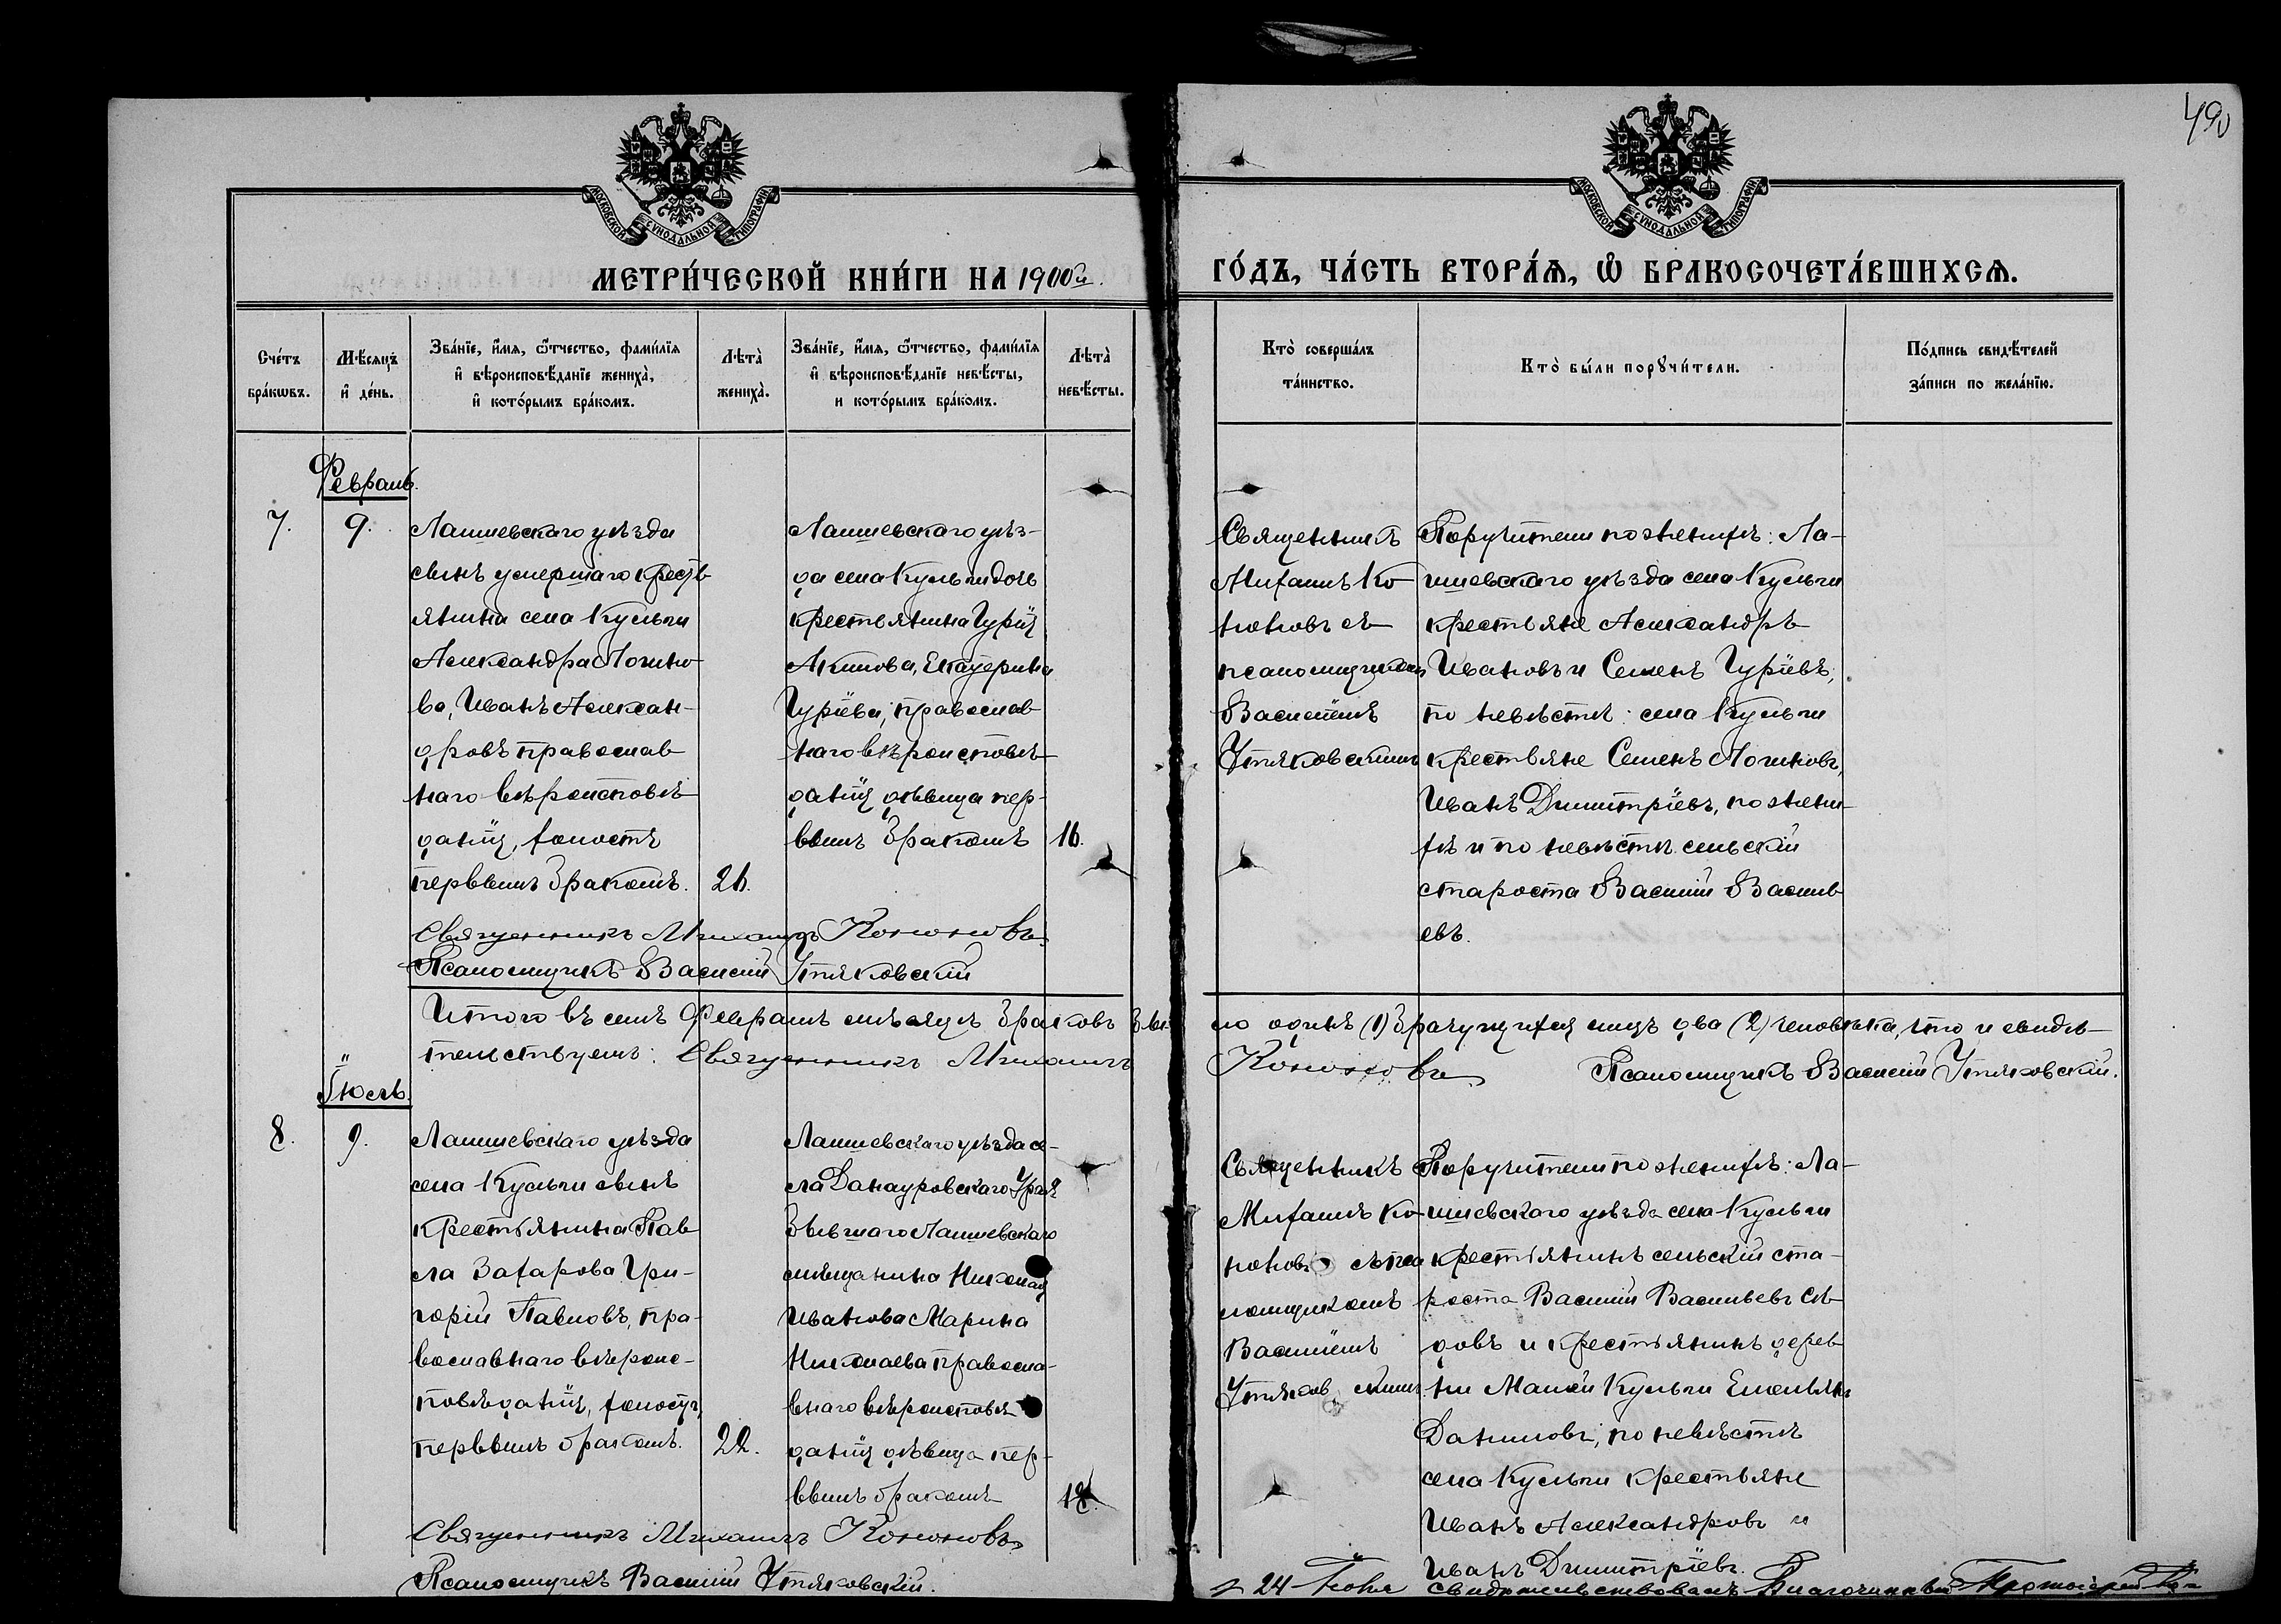 490
МОСКОВСКОЙ СУНОДАЛЬНОЙ ТИПОГРАФІИ
МОСКОВСКОЙ СУНОДАЛЬНОЙ ТИПОГРАФІИ
МЕТРИ́ЧЕСКОЙ КНИ́ГИ НА 1900й.
ГО́ДЪ, ЧА́СТЬ ВТОРА́Ѧ, Ѡ҆ БРАКОСОЧЕТА́ВШИХСѦ.
Сче́тъ
бра́кѡвъ.
Мѣ́сяцъ
и҆ де́нь.
Зва́нїе, и҆́мя, ѻ҆́тчество, фами́лїя
и҆ вѣроисповѣ́данїе жениха̀,
и҆ кото́рымъ бра́комъ.
Лѣта̀
жениха̀.
Зва́нїе, и҆́мя, ѻ҆́тчество, фами́лїя
и҆ вѣроисповѣ́данїе невѣ́сты,
и кото́рымъ бра́комъ.
Лѣта̀
невѣ́сты.
Кто̀ соверша́лъ
та́инство.
Кто̀ бы́ли порꙋчи́тели.
По́дпись свидѣ́телей
за́писи по жела́нїю.
Февраль.
7.
9.
Лаишевскаго уѣзда
сынъ умершаго кресть
янина села Кульги
Александра Логино
ва, Иванъ Алексан-
дровъ православ
наго вѣроисповѣ
данія, холостъ
первымъ бракомъ.
21.
Лаишевскаго уѣз-
да села Кульги дочь
крестьянина Гурія
Акимова, Екатерина
Гуріева, православ
наго вѣроисповѣ
данія дѣвица пер-
вымъ бракомъ
16.
Священникъ
Михаилъ Ко
ноновъ съ
псаломщикомъ
Василіемъ
Утяковскимъ
Поручители по женихѣ: Ла-
ишевскаго уѣзда села Кульги
крестьяне Александръ
Ивановъ и Семенъ Гуріевъ;
по невѣстѣ: села Кульги
крестьяне Семенъ Логиновъ,
Иванъ Димитріевъ, по жени-
хѣ и по невѣстѣ сельскій
староста Василій Василь
евъ.
Священникъ Михаилъ Кононовъ
Псаломщикъ Василій Утяковскій
Итого въ семъ Февралѣ мѣсяцѣ браковъ бы-
ло одинъ (1) брачущихся лицъ два (2) человѣка, что и свидѣ-
тельствуемъ: Священникъ Михаилъ
Кононовъ Псаломщикъ Василій Утяковскій.
Іюль.
8.
9.
Лаишевскаго уѣзда
села Кульги сынъ
крестьянина Пав
ла Захарова Гри-
горій Павловъ, пра-
вославнаго вѣроис-
повѣданія, холостъ,
первымъ бракомъ.
22.
Лаишевскаго уѣзда се-
ла Данауровскаго
бывшаго Лаишевскаго
мѣщанина Николая
Иванова Марина
Николаева правосла-
внаго вѣроисповѣ
данія дѣвица пер-
вымъ бракомъ
18.
Священникъ
Михаилъ Ко
ноновъ съ пса
ломщикомъ
Василіемъ
Утяковскимъ
Поручители по женихѣ: Ла-
ишевскаго уѣзда села Кульги
крестьянинъ сельскій ста-
роста Василій Васильевъ Сѣ
довъ и крестьянинъ дерев
ни Малой Кульги Емельянъ
Даниловъ; по невѣстѣ
села Кульги крестьяне
Иванъ Александровъ и
Иванъ Димитріевъ.
Священникъ Михаилъ Кононовъ
Псаломщикъ Василій Утяковскій.
24 Іюля свидѣтельствовалъ Благочинный Протоіерей